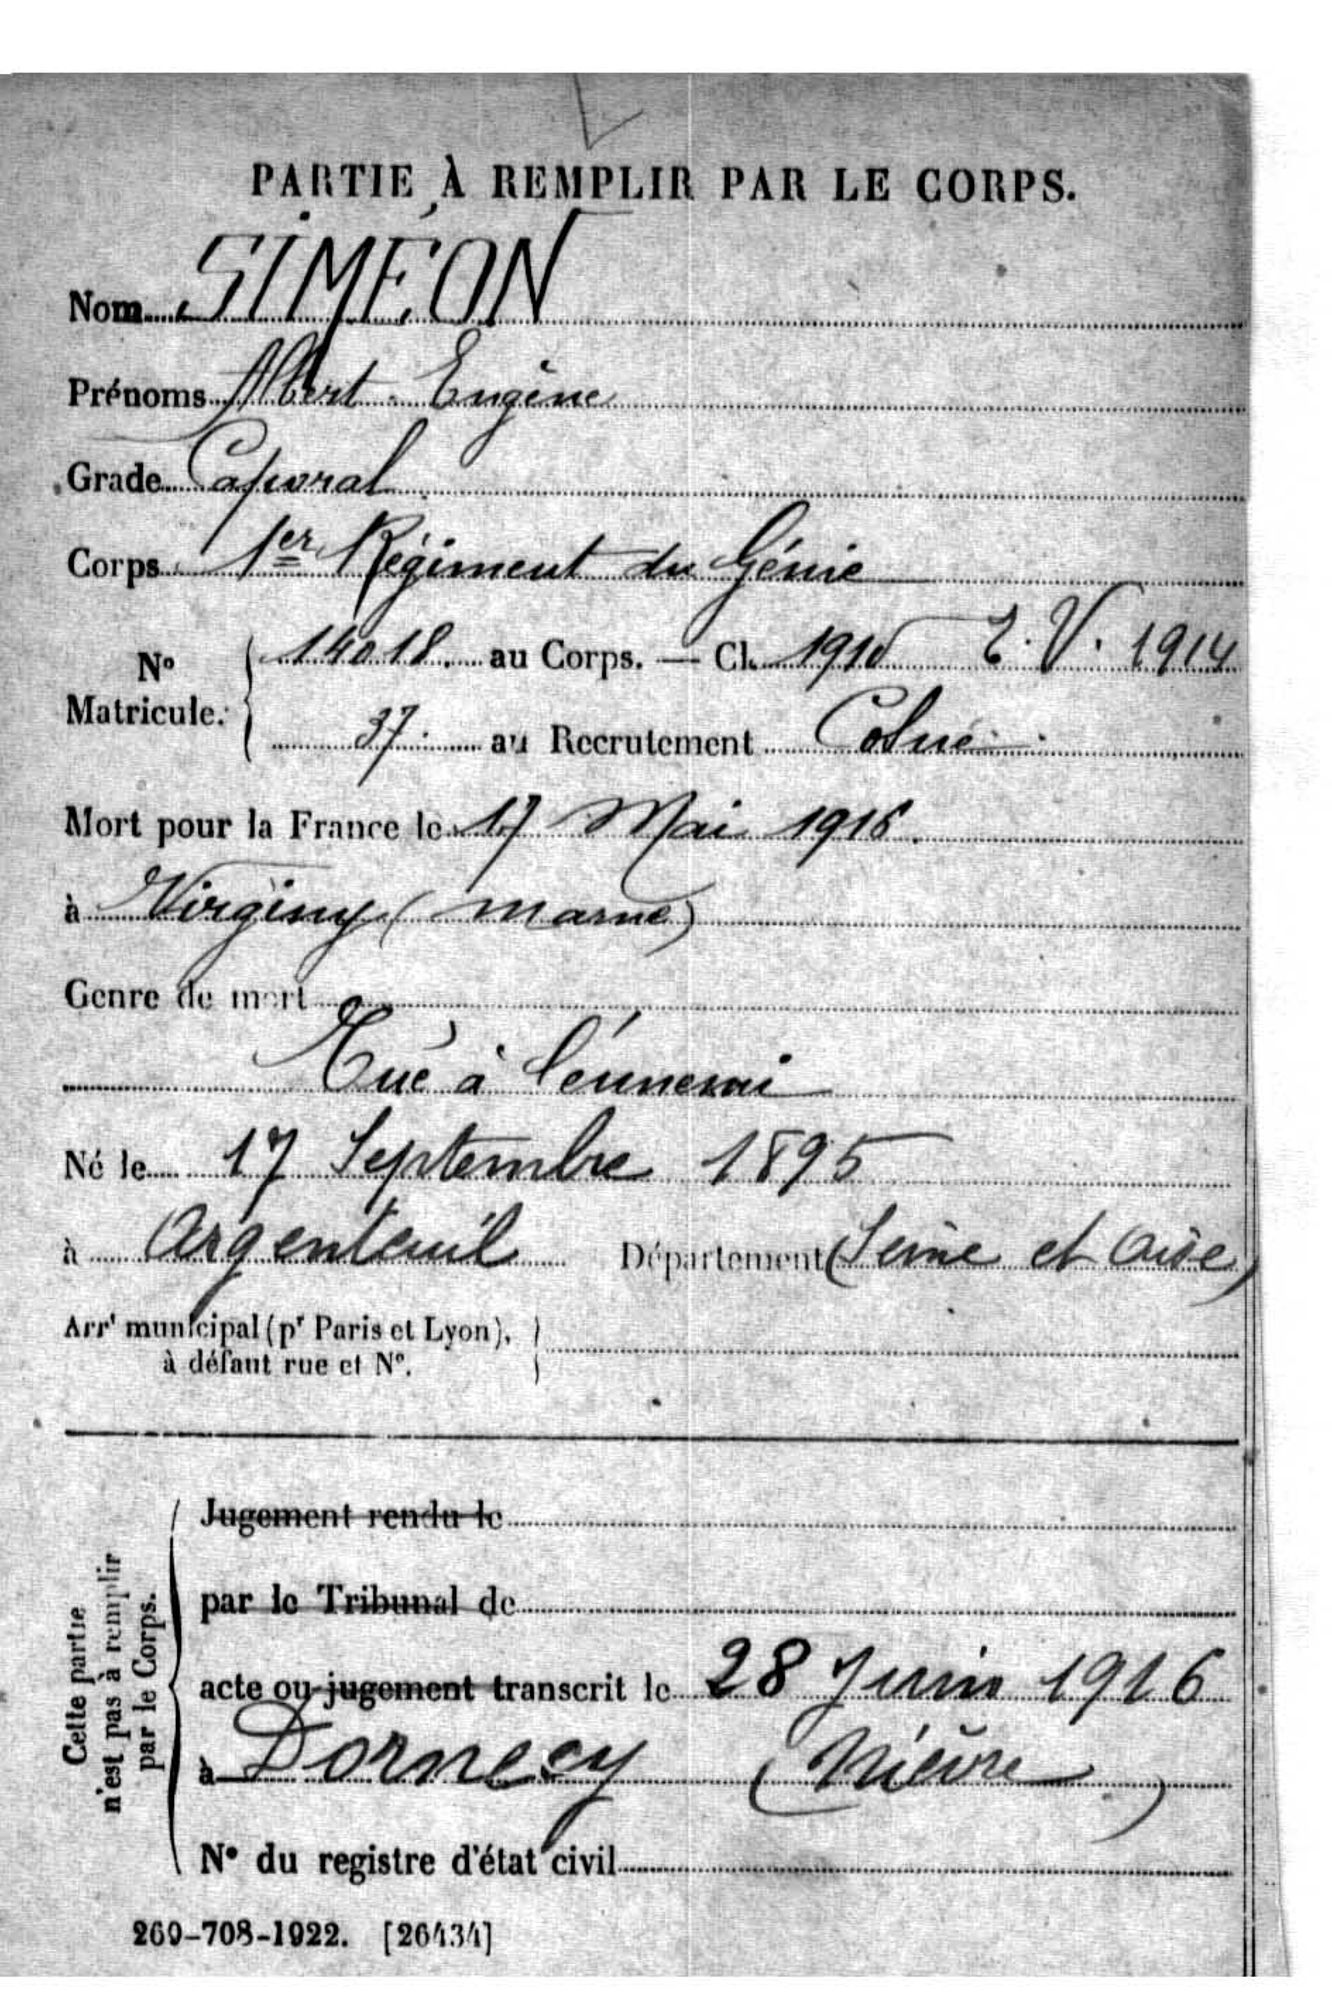 PARTIE À REMPLIR PAR LE CORPS.
Nom SIMÉON
Prénoms Albert Eugène
Grade Caporal
Corps 1er Régiment du Génie
No Matricule. 14018. au Corps. — Cl. 1915 E.V. 1914
37. au Recrutement Cosne
Mort pour la France le 17 Mai 1916
à Virginy (Marne)
Genre de mort
Tué à l'ennemi
Né le 17 Septembre 1895
à Argenteuil Département (Seine et Oise)
Arrt municipal (pr Paris et Lyon),
à défaut rue et No.
Cette partie
n'est pas à remplir
par le Corps.
Jugement rendu le
par le Tribunal de
acte ou jugement transcrit le 28 Juin 1916
à Dornecy (Nièvre)
No du registre d'état civil
269-708-1922. [26434]